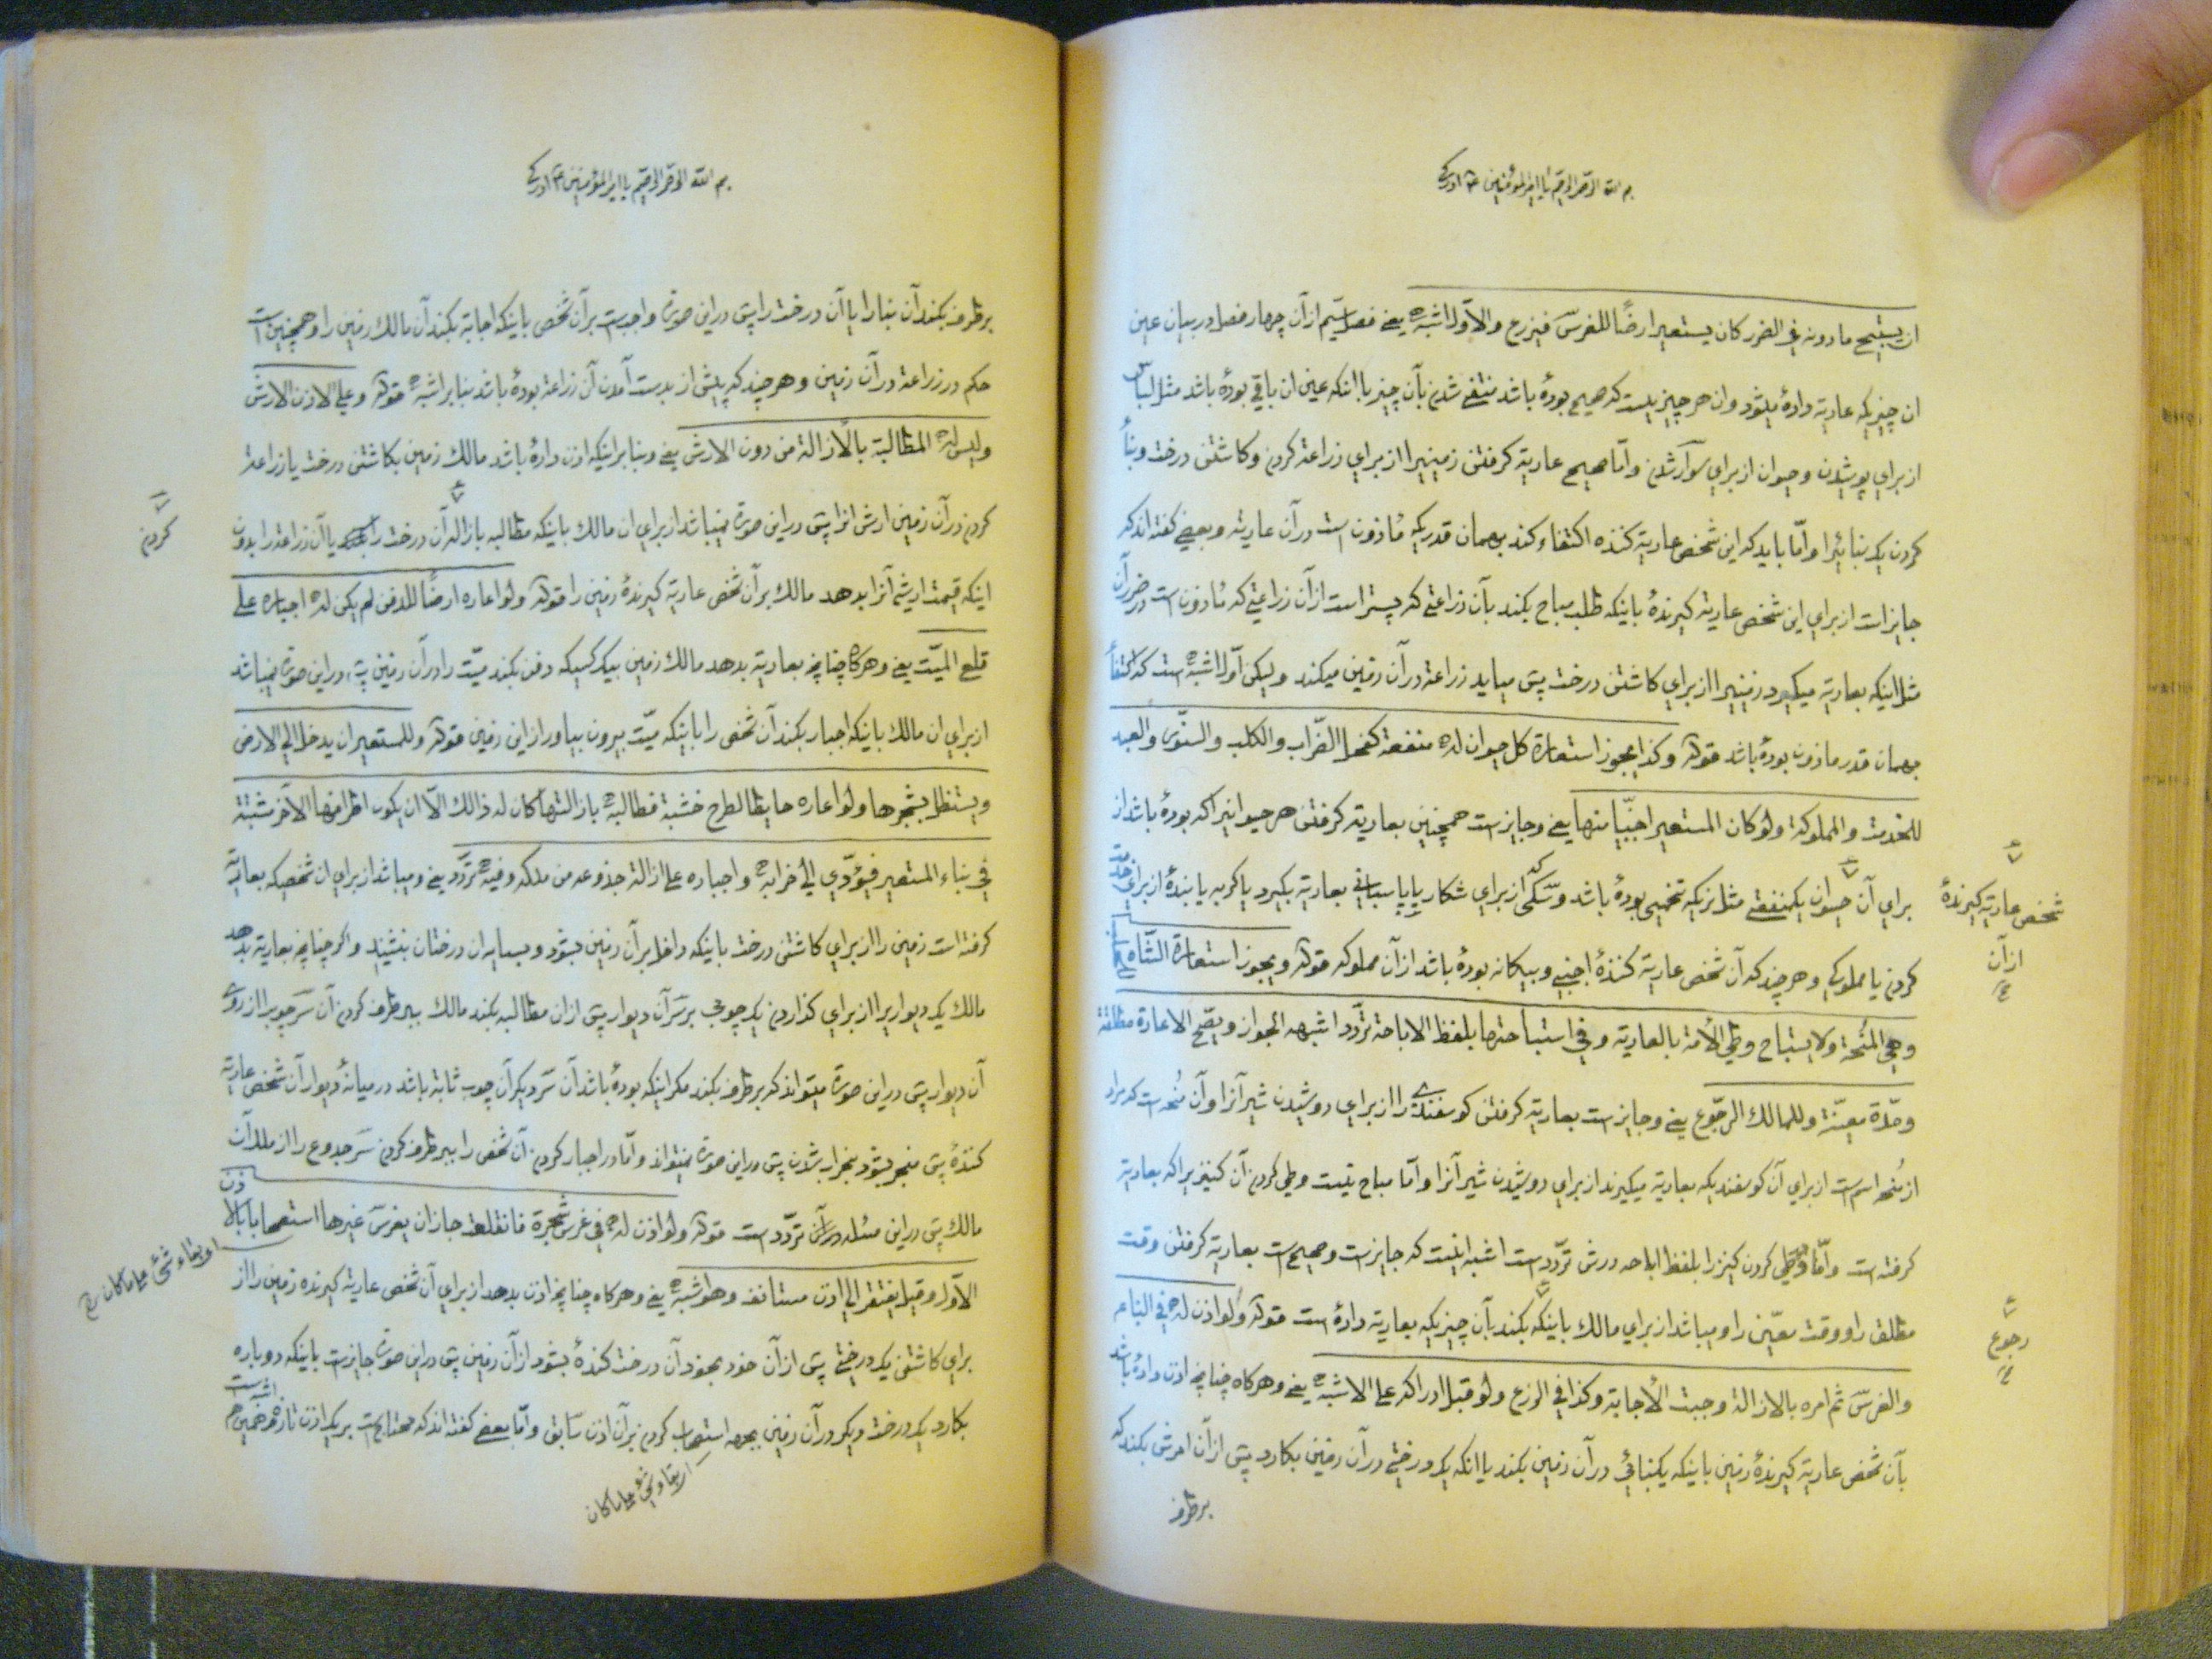 بسم الله الرحمن الرحیم یا امیر المؤمنین ع ادرکنی
ان یستبیح مادونه فی الضرر کان یستعیر ارضاً للغرس فیزرع والاوّل اشبه یعنی فصل سیّم از آن چهار فصل در بیان عین
ان چیزیکه عاریة داده میشود وان هر چیزیست که صحیح بوده باشد منتفع شدن بآن چیز با انکه عین ان باقی بوده باشد مثل لباس
از برای پوشیدن وحیوان از برای سوار شدن وامّا صحیح عاریة کرفتن زمینیرا از برای زراعة کردن وکاشتن درخت وبنأ
کردن یک بنائیرا وامّا باید که این شخص عاریة کننده اکتفاء کند بهمان قدریکه مأذون است در آن عاریة وبعضی کفته اند که
جایز است از برای این شخص عاریة کیرندهٔ باینکه طلب مباح بکند بآن زراعتی که پستر است از آن زراعتی که مأذون است در ضرر آن
مثل اینکه بعاریة میکیرد زمینیرا از برای کاشتن درخت پس میاید زراعة در آن زمین میکند ولیکن اوّل اشبه است که اکتفأ
بهمان قدر ماذون بوده باشد قوله وکذا یجوز استعارة کل حیوان له منفعة کفحل الضراب والکلب والسنّور والعبد
للخدمة والمملوکة ولو کان المستعیر اجنبیّا منها یعنی وجایز است همچنین بعاریة کرفتن هر حیوانیرا که بوده باشد از
برای آن حیوان یکمنفعتی مثل نریکه تخمی بوده باشد وسکی که از برای شکار یا پاسبانی بعاریة بکیرد یا کربه یا بندهٔ از برای خدمت
شخص عاریة کیرندهٔ
از آن
کردن یا مملوکه وهر چند که آن شخص عاریة کنندهٔ اجنبی وبیکانه بوده باشد از آن مملوکه قوله ویجوز استعارة الشاة للحلب
وهی المنحة ولا یستباح وطی الأمة بالعاریة وفی استباحتها بلفظ الاباحة تردّد اشبهه الجواز ویصّح الاعارة مطلقة
ومدّة معیّنة وللمالک الرجوع یعنی وجایز است بعاریة کرفتن کوسفندی را از برای دوشیدن شیر آنرا وآن منحه است که مراد
از منحه اسم است از برای آن کوسفندیکه بعاریة میکیرند از برای دوشیدن شیر آنرا وامّا مباح نیست وطی کردن آن کنیزیرا که بعاریة
کرفته است وامّا وطی کردن کنیز را بلفظ اباحه درش تردّد است اشبه اینست که جایز است وصحیح است بعاریة کرفتن وقت
مطلق را ووقت معیّن را ومیباشد از برای مالک باینکه بکند بآن چیزیکه بعاریة داده است قوله ولو اذن له فی البناء
رجوع
والغرس ثم امره بالازالة وجبت الأجابة وکذا فی الزرع ولو قبل ادراکه علی الاشبه یعنی وهرکاه چنانچه اذن داده باشد
بآن شخص عاریة کیرندهٔ زمین باینکه یکبنائی در آن زمین بکند یا انکه یک درختی در آن زمین بکارد پس از آن امرش بکند که
برطرف
بسم الله الرحمن الرحیم یا امیر المؤمنین ع ادرکنی
برطرف بکند آن بنا را یا آن درخت را پس در این صورة واجبست بر آن شخص باینکه اجابة بکند آن مالک زمین را وهمچنین است
حکم در زراعة در آن زمین وهر چند که پیش از بدست آمدن آن زراعة بوده باشد بنا بر اشبه قوله وعلی الاذن الارش
ولیس له المطالبة بالأزالة من دون الارش یعنی وبنا بر اینکه اذن داده باشد مالک زمین بکاشتن درخت یا زراعة
کردن در آن زمین ارش انرا پس در این صورة نمیباشد از برای ان مالک باینکه مطالبه بازاله آن درخت را یا آن زراعة را بدون
کردن
اینکه قیمت ارش آنرا بدهد مالک بر آن شخص عاریة کیرندهٔ زمین را قوله ولو اعاره ارضاً للدفن لم یکن له اجباره علی
قلع المیّت یعنی وهرکاه چنانچه بعاریة بدهد مالک زمین بیک کسیکه دفن بکند میّت را در آن زمین پس در این صورة نمیباشد
از برای ان مالک باینکه اجبار بکند آن شخص را باینکه میّت بیرون بیاورد از این زمین قوله وللمستعیر ان یدخل الی الارض
ویستظل بشجرها ولو اعاره حایطا لطرح خشبة فطالبه بازالتها کان له ذالک الا ان یکون اطرافها الاخر مثبتة
فی بناء المستعیر فیؤدّی الی خرابه واجباره علی ازالة جذوعه من ملکه وفیه تردّد یعنی ومیباشد از برای ان شخصیکه بعاریة
کرفته است زمین را از برای کاشتن درخت باینکه داخل بر آن زمین بشود وبسایه ان درختان بنشیند واکر چنانچه بعاریة بدهد
مالک یک دیواریرا از برای کذاردن یک چوبی بر سر آن دیوار پس از ان مطالبه بکند مالک ببرطرف کردن آن سر چوب را از روی
آن دیوار پس در این صورة میتواند که برطرف بکند مکر اینکه بوده باشد آن سر دیکر آن چوب ثابة باشد در میانهٔ دیوار آن شخص عاریة
کنندهٔ پس منجر بشود بخراب شدن پس در این صورة نمیتواند وامّا در اجبار کردن آن شخص را ببرطرف کردن سر جذوع را از ملک آن
مالک پس در این مسئله در آن تردّد است قوله ولو اذن له فی غرس شجرة فانقلعت جاز ان یغرس غیرها استصحابا بالاذن
او بقاء شئ علی ما کان
الأوّل وقیل یفتقر الی اذن مستانف وهو اشبه یعنی وهرکاه چنانچه اذن بدهد از برای آن شخص عاریة کیرنده زمین را از
برای کاشتن یک درختی پس از آن خود بخود آن درخت کندهٔ بشود از آن زمین پس در این صورة جایز است باینکه دوباره
بکارد یک درخت دیکر در آن زمین بجهه استصحاب کردن بر آن اذن سابق وامّا بعضی کفته اند که محتاجست بر یک اذن تازه همین هم اشبه است
ابقاء شئ علی ما کان